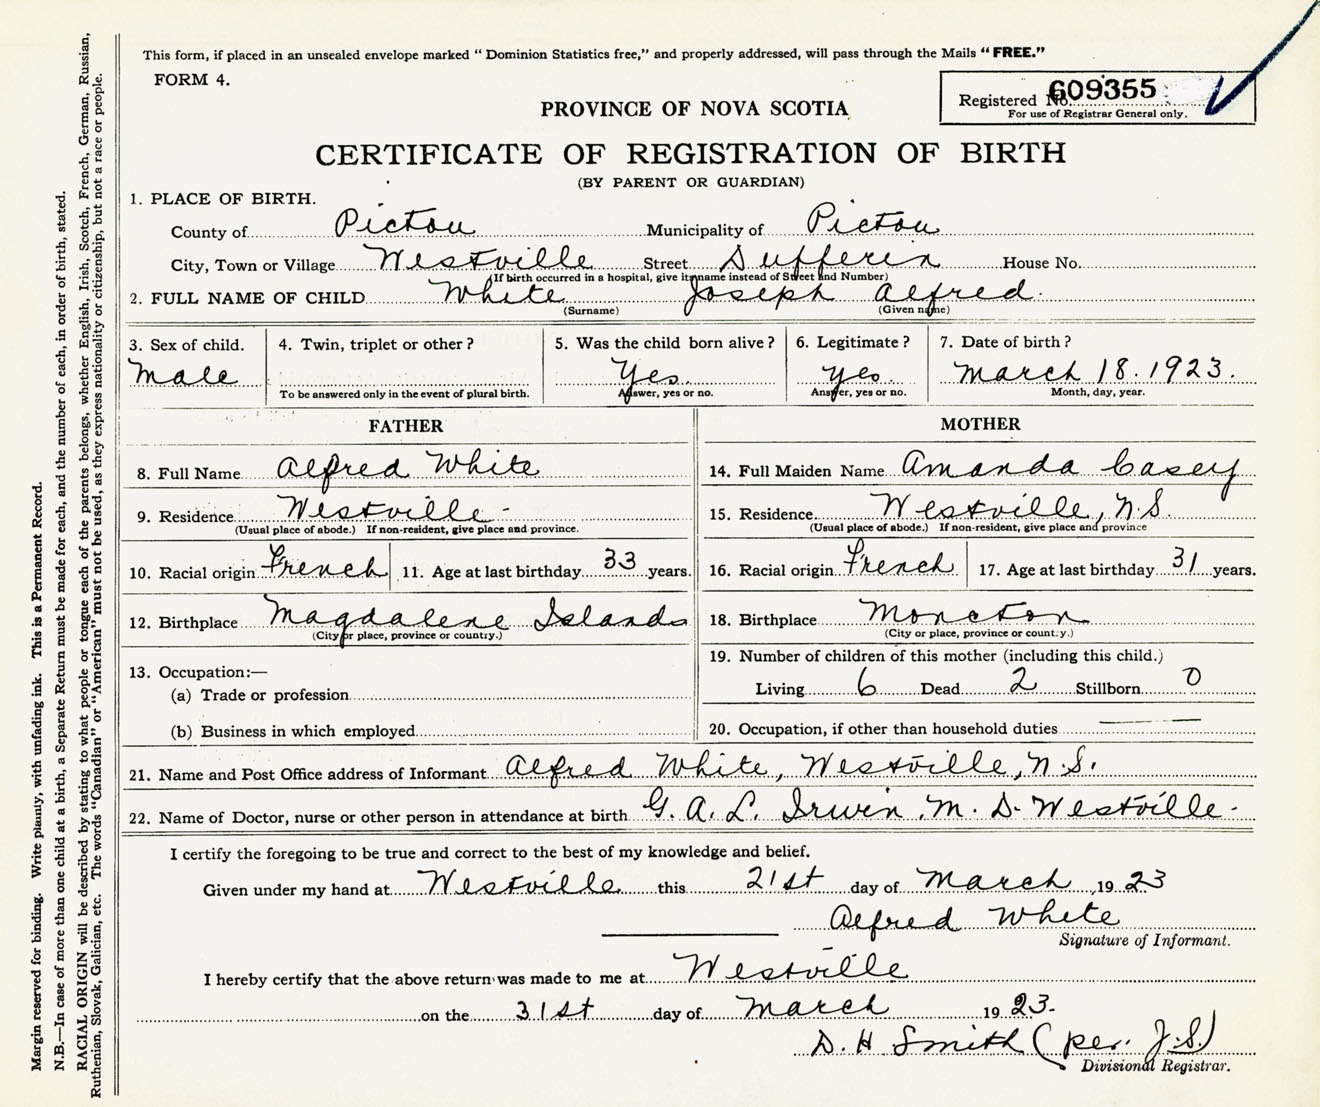 This form, if placed in an unsealed envelope marked "Dominion Statistics free," and properly addressed, will pass through the Mails "FREE."
FORM 4.
609355
Registered No.
For use of Registrar General only.
PROVINCE OF NOVA SCOTIA
CERTIFICATE OF REGISTRATION OF BIRTH
(BY PARENT OR GUARDIAN)
1. PLACE OF BIRTH.
County of Pictou Municipality of Pictou
City, Town or Village Westville Street Dufferin House No.
(If birth occurred in a hospital, give its name instead of Street and Number)
2. FULL NAME OF CHILD White Joseph Alfred.
(Surname) (Given name)
3. Sex of child. 4. Twin, triplet or other? 5. Was the child born alive? 6. Legitimate? 7. Date of birth?
Male Yes. yes. March 18. 1923.
To be answered only in the event of plural birth. Answer, yes or no. Answer, yes or no. Month, day, year.
FATHER MOTHER
8. Full Name Alfred White 14. Full Maiden Name Amanda Casey
9. Residence Westville - 15. Residence Westville, N.S.
(Usual place of abode.) If non-resident, give place and province. (Usual place of abode.) If non-resident, give place and province
10. Racial origin French 11. Age at last birthday 33 years. 16. Racial origin French 17. Age at last birthday 31 years.
12. Birthplace Magdalene Islands 18. Birthplace Moncton
(City or place, province or country.) (City or place, province or country.)
13. Occupation:— 19. Number of children of this mother (including this child.)
(a) Trade or profession Living 6 Dead 2 Stillborn 0
(b) Business in which employed 20. Occupation, if other than household duties
21. Name and Post Office address of Informant Alfred White, Westville, N.S.
22. Name of Doctor, nurse or other person in attendance at birth G. A. L. Irwin. M. D. Westville -
I certify the foregoing to be true and correct to the best of my knowledge and belief.
Given under my hand at Westville this 21st day of March, 1923
Alfred White
Signature of Informant.
I hereby certify that the above return was made to me at Westville
on the 31st day of March 1923.
D. H Smith (per. J.S.)
Divisional Registrar.
Margin reserved for binding. Write plainly, with unfading ink. This is a Permanent Record.
N.B.—In case of more than one child at a birth, a Separate Return must be made for each, and the number of each, in order of birth, stated.
RACIAL ORIGIN will be described by stating to what people or tongue each of the parents belongs, whether English, Irish, Scotch, French, German, Russian,
Ruthenian, Slovak, Galician, etc. The words "Canadian" or "American" must not be used, as they express nationality or citizenship, but not a race or people.